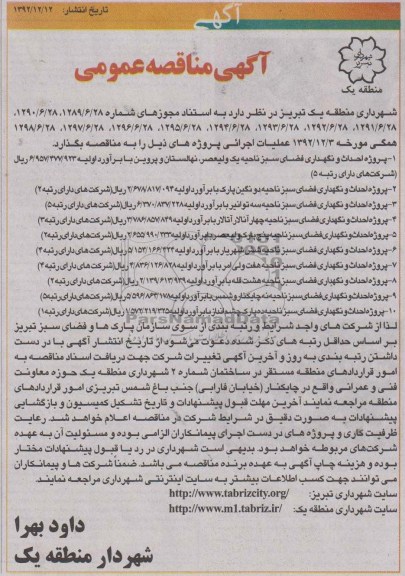 آگهی
تاریخ انتشار: ۱۳۹۲/۱۲/۱۲
آگهی مناقصه عمومی
منطقه یک
شهرداری منطقه یک تبریز در نظر دارد به استناد مجوزهای شماره ۱۲۸۹/۶/۲۸، ۱۲۹۰/۶/۲۸،
۱۲۹۱/۶/۲۸، ۱۲۹۲/۶/۲۸، ۱۲۹۳/۶/۲۸، ۱۲۹۴/۶/۲۸، ۱۲۹۵/۶/۲۸، ۱۲۹۶/۶/۲۸، ۱۲۹۷/۶/۲۸، ۱۲۹۸/۶/۲۸
همگی مورخه ۱۳۹۲/۱۲/۳ عملیات اجرائی پروژه های ذیل را به مناقصه بگذارد.
۱-پروژه احداث و نگهداری فضای سبز ناحیه یک ولیعصر، نهالستان و پروین با برآورد اولیه ۶/۹۵۷/۳۷۷/۹۲۳ ریال
(شرکت‌های دارای رتبه ۵)
۲-پروژه احداث و نگهداری فضای سبز ناحیه دو نگین پارک با برآورد اولیه ۲/۶۷۷/۸۱۷/۰۹۳ ریال (شرکت های دارای رتبه ۲)
۳-پروژه احداث و نگهداری فضای سبز ناحیه سه توانیر با برآورد اولیه ۶/۳۷۰/۸۳۷/۲۲۸ ریال (شرکت های دارای رتبه ۵)
۴-پروژه احداث و نگهداری فضای سبز ناحیه چهار آنالار آتالار با برآورد اولیه ۳/۷۸۶/۸۵۷/۸۴۹ ریال (شرکت های دارای رتبه ۳)
۵-پروژه احداث و نگهداری فضای سبز ناحیه پنج پارک ولیعصر با برآورد اولیه ۲/۶۵۵/۹۹۰/۲۳۳ ریال (شرکت های دارای رتبه ۲)
۶-پروژه احداث و نگهداری فضای سبز ناحیه شش شهریار با برآورد اولیه ۵/۱۵۳/۱۶۶/۴۴۴ ریال (شرکت های دارای رتبه ۴)
۷-پروژه احداث و نگهداری فضای سبز ناحیه هفت ولی امر با برآورد اولیه ۴/۸۳۶/۱۲۶/۸۲۸ ریال (شرکت های دارای رتبه ۴)
۸-پروژه احداث و نگهداری فضای سبز ناحیه هشت الله با برآورد اولیه ۲/۱۳۹/۶۱۳/۹۳۹ ریال (شرکت های دارای رتبه ۲)
۹-پروژه احداث و نگهداری فضای سبز ناحیه نه چایکنار و شمس با برآورد اولیه ۵/۵۹۶/۸۶۳/۱۷۸ ریال (شرکت های دارای رتبه ۵)
۱۰-پروژه احداث و نگهداری فضای سبز ناحیه ده پارک جانباز با برآورد اولیه ۱/۷۵۲/۲۱۹/۲۳۵ ریال (شرکت های دارای رتبه ۱)
لذا از شرکت های واجد شرایط و رتبه بندی از سوی سازمان پارک ها و فضای سبز تبریز
بر اساس حداقل رتبه های ذکر شده دعوت می شود از تاریخ انتشار آگهی با در دست
داشتن رتبه بندی به روز و آخرین آگهی تغییرات شرکت جهت دریافت اسناد مناقصه به
امور قراردادهای منطقه مستقر در ساختمان شماره ۲ شهرداری منطقه یک حوزه معاونت
فنی و عمرانی واقع در چایکنار (خیابان فارابی) جنب باغ شمس تبریزی امور قراردادهای
منطقه مراجعه نمایند آخرین مهلت قبول پیشنهادات و تاریخ تشکیل کمیسیون و بازگشایی
پیشنهادات به صورت دقیق در شرایط شرکت در مناقصه اعلام خواهد شد. رعایت
ظرفیت کاری و پروژه های در دست اجرای پیمانکاران الزامی بوده و مسئولیت آن به عهده
شرکت‌های مربوطه خواهد بود. بدیهی است شهرداری در رد یا قبول پیشنهادات مختار
بوده و هزینه چاپ آگهی به عهده برنده مناقصه می باشد. ضمناً شرکت ها و پیمانکاران
می توانند جهت کسب اطلاعات بیشتر به سایت اینترنتی شهرداری مراجعه نمایند.
سایت شهرداری تبریز: http://www.tabrizcity.org/
سایت شهرداری منطقه یک: http://www.m1.tabriz.ir/
داود بهرا
شهردار منطقه یک
ParsNamadData